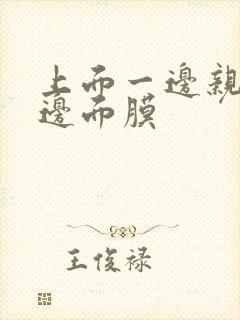 上而一邊親
邊而膜
王俊禄